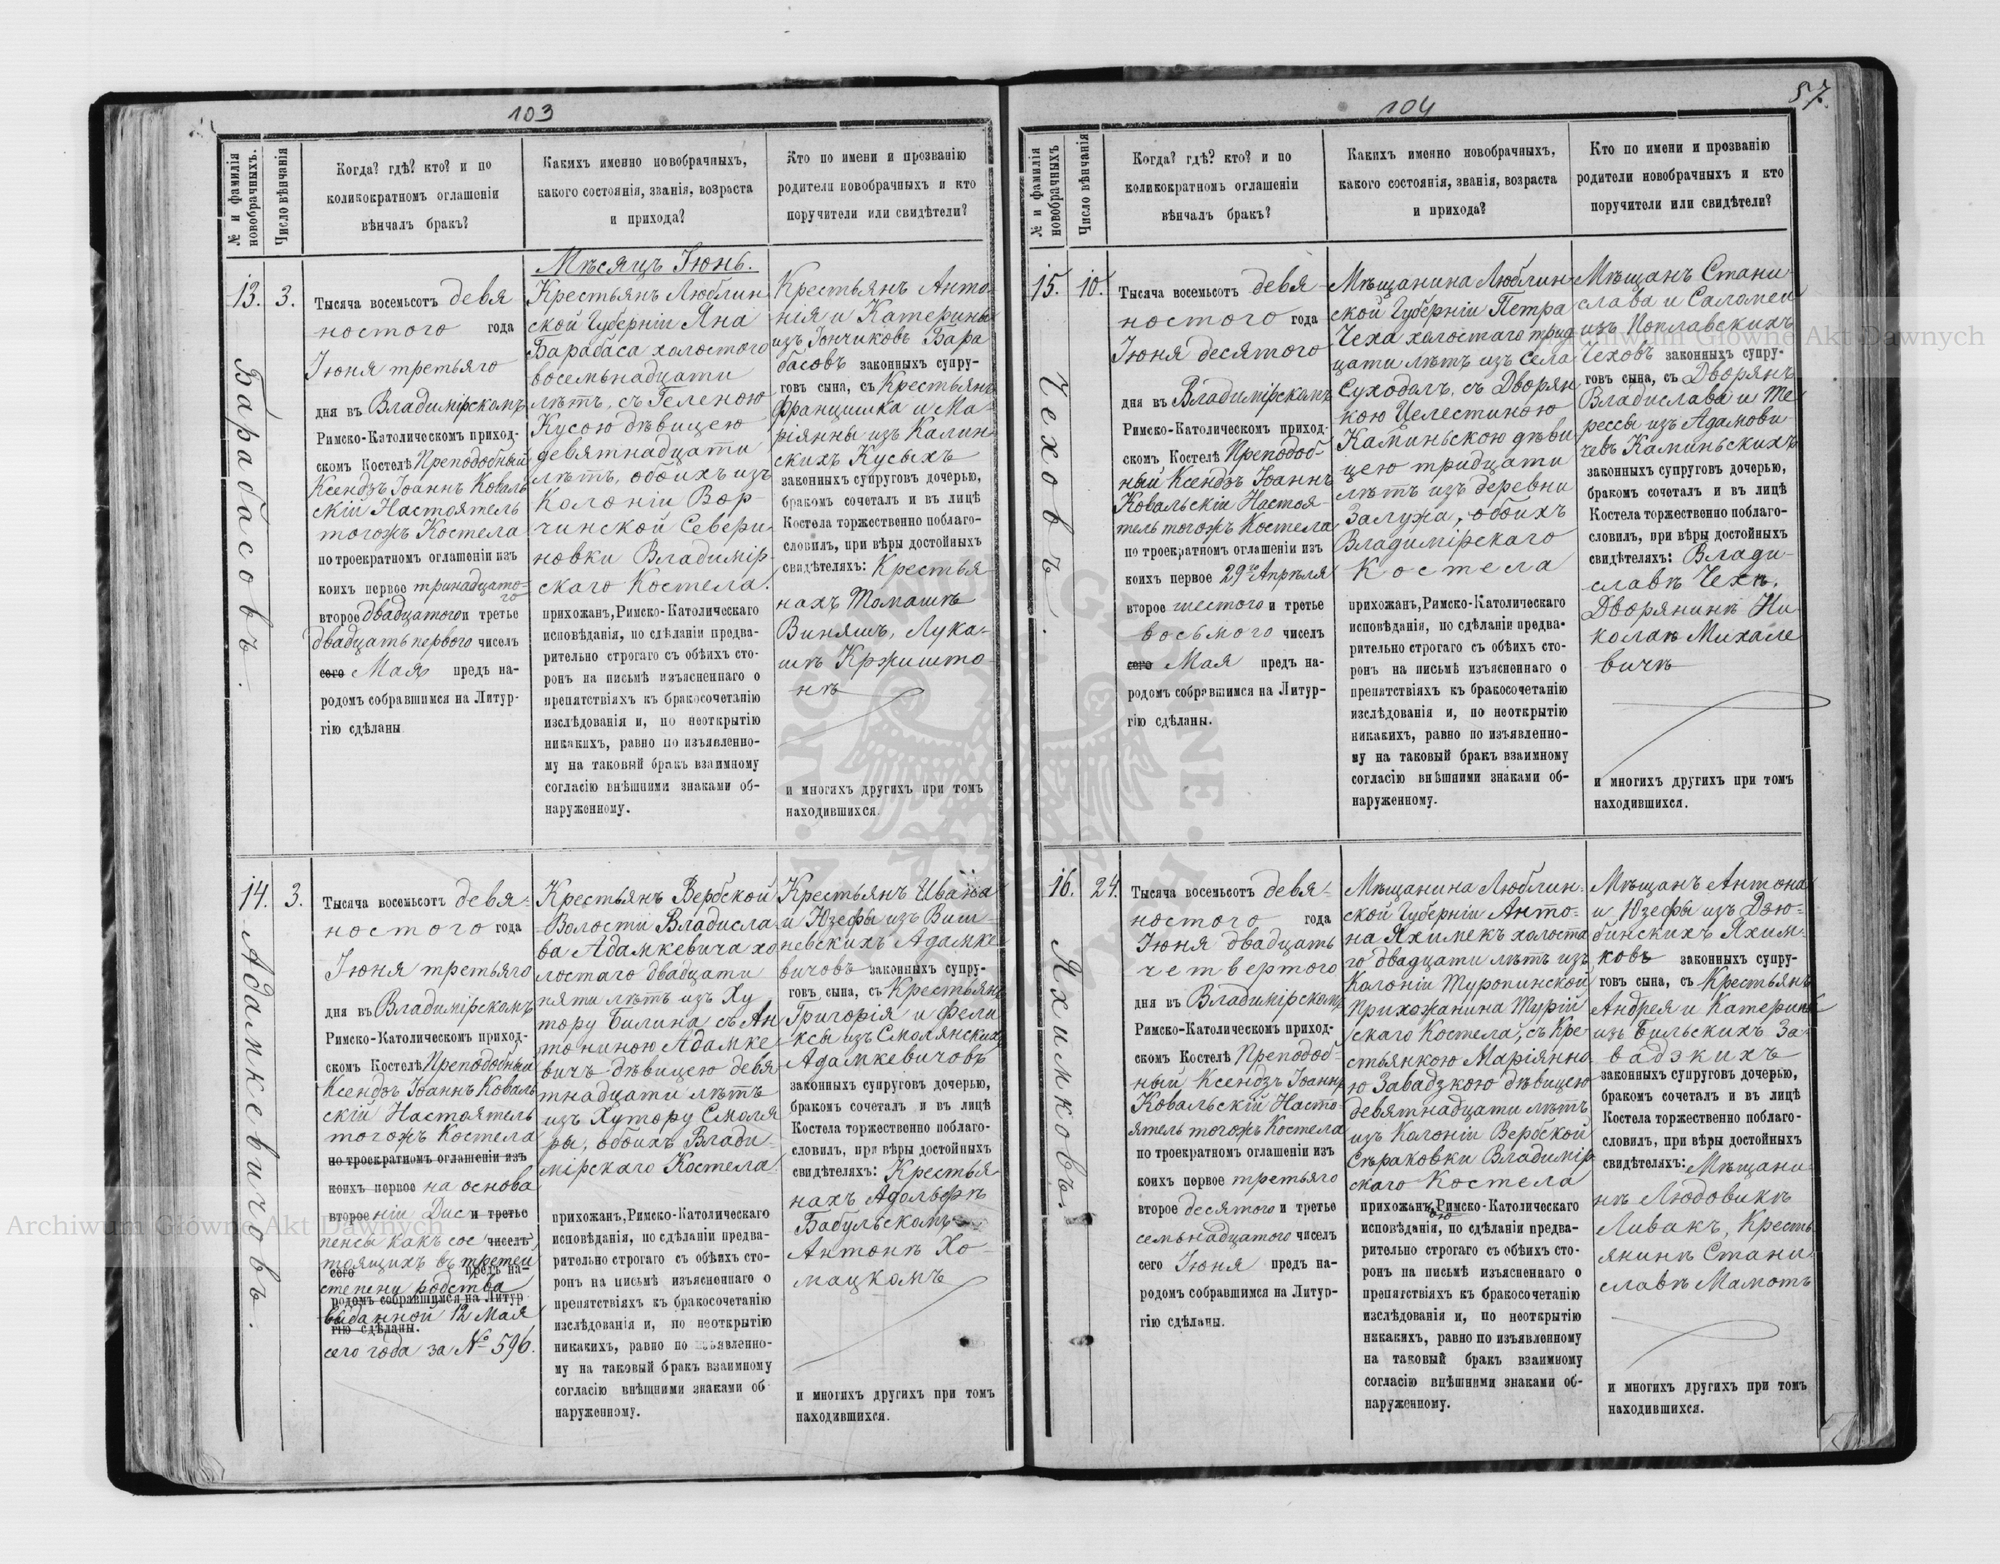 103
№ и фамилія новобрачныхъ.
Число вѣнчанія
Когда? гдѣ? кто? и по
коликократномъ оглашеніи
вѣнчалъ бракъ?
Какихъ именно новобрачныхъ,
какого состоянія, званія, возраста
и прихода?
Кто по имени и прозванію
родители новобрачныхъ и кто
поручители или свидѣтели?
13.
Барабасовъ.
3.
Тысяча восемьсотъ девя
ностого года
Іюня третьяго
дня въ Владимірскомъ
Римско-Католическомъ приход-
скомъ Костелѣ Преподобный
Ксендзъ Іоаннъ Коваль
скій Настоятель
тогожъ Костела
по троекратномъ оглашеніи изъ
коихъ первое тринадцато-
го
второе двадцатого и третье
двадцать первого чиселъ
сего Мая предъ на-
родомъ собравшимся на Литур-
гію сдѣланы
Мѣсяцъ Іюнь.
Крестьянъ Люблин
ской Губерніи Яна
Барабаса холостого
восемьнадцати
лѣтъ, съ Геленою
Кусою дѣвицею
девятнадцати
лѣтъ, обоихъ изъ
Колоніи Вор-
чинской Севери
новки Владимір-
скаго Костела.
прихожан, Римско-Католическаго
исповѣданія, по сдѣланіи предва-
рительно строгаго съ обѣихъ сто-
ронъ на письмѣ изъясненнаго о
препятствіяхъ къ бракосочетанію
изслѣдованія и, по неоткрытію
никакихъ, равно по изъявленно-
му на таковый бракъ взаимному
согласію внѣшними знаками об-
наруженному.
Крестьянъ Анто-
нія и Катерины
изъ Іончиковъ Бара
басовъ законныхъ супру-
говъ сына, съ Крестьянъ
Францишка и Ма-
ріянны изъ Калин-
скихъ Кусыхъ
законныхъ супруговъ дочерью,
бракомъ сочеталъ и въ лицѣ
Костела торжественно поблаго-
словилъ, при вѣры достойныхъ
свидѣтеляхъ: Крестья-
нахъ Томашѣ
Виняшъ, Лука-
шѣ Кржишто-
нѣ
и многихъ другихъ при томъ
находившихся.
14.
Адамкевичовъ.
3.
Тысяча восемьсотъ девя-
ностого года
Іюня третьяго
дня въ Владимірскомъ
Римско-Католическомъ приход-
скомъ Костелѣ Преподобный
Ксендзъ Іоаннъ Коваль
скій Настоятель
тогожъ Костела
по троекратномъ оглашеніи изъ
коихъ первое на основа
второе ніи Дис и третье
пенсы какъ сос чиселъ
тоящихъ въ третей
сего предъ на-
степени родства
родомъ собравшимся на Литур
выданной 12 Мая
гію сдѣланы.
сего года за № 596.
Крестьянъ Вербской
Волости Владисла
ва Адамкевича хо
лостаго двадцати
пяти лѣтъ изъ Ху
тору Билина съ Ан
тониною Адамке
вичъ дѣвицею девя
тнадцати лѣтъ
изъ Хутору Смоля
ры, обоихъ Влади-
мірскаго Костела.
прихожан, Римско-Католическаго
исповѣданія, по сдѣланіи предва-
рительно строгаго съ обѣихъ сто-
ронъ на письмѣ изъясненнаго о
препятствіяхъ къ бракосочетанію
изслѣдованія и, по неоткрытію
никакихъ, равно по изъявленно-
му на таковый бракъ взаимному
согласію внѣшними знаками об
наруженному.
Крестьянъ Ивана
и Юзефы изъ Виш-
невскихъ Адамке
вичовъ законныхъ супру-
говъ сына, съ Крестьянъ
Григорія и Фели
ксы изъ Смолянскихъ
Адамкевичовъ
законныхъ супруговъ дочерью,
бракомъ сочеталъ и въ лицѣ
Костела торжественно поблаго-
словилъ, при вѣры достойныхъ
свидѣтеляхъ: Крестья
нахъ Адольфѣ
Бабульскомъ
Антонѣ Хо-
мацкомъ
и многихъ другихъ при томъ
находившихся.
104
57.
№ и фамилія новобрачныхъ
Число вѣнчанія
Когда? гдѣ? кто? и по
коликократномъ оглашеніи
вѣнчалъ бракъ?
Какихъ именно новобрачныхъ,
какого состоянія, званія, возраста
и прихода?
Кто по имени и прозванію
родители новобрачныхъ и кто
поручители или свидѣтели?
15.
Чеховъ.
10.
Тысяча восемьсотъ девя-
ностого года
Іюня десятого
дня въ Владимірскомъ
Римско-Католическомъ приход-
скомъ Костелѣ Преподоб-
ный Ксендзъ Іоаннъ
Ковальскій Настоя-
тель тогожъ Костела
по троекратномъ оглашеніи изъ
коихъ первое 29го Апрѣля
второе шестого и третье
восьмого чиселъ
сего Мая предъ на-
родомъ собравшимся на Литур-
гію сдѣланы.
Мѣщанина Люблин-
ской Губерніи Петра
Чеха холостаго трид
цати лѣтъ изъ села
Суходолъ, съ Дворян
кою Целестиною
Каминьскою дѣви
цею тридцати
лѣтъ изъ деревни
Залужа, обоихъ
Владимірскаго
Костела
прихожан, Римско-Католическаго
исповѣданія, по сдѣланіи предва-
рительно строгаго съ обѣихъ сто-
ронъ на письмѣ изъясненнаго о
препятствіяхъ къ бракосочетанію
изслѣдованія и, по неоткрытію
никакихъ, равно по изъявленно-
му на таковый бракъ взаимному
согласію внѣшними знаками об-
наруженному.
Мѣщанъ Стани-
слава и Саломеи
изъ Поплавскихъ
Чеховъ законныхъ супру-
говъ сына, съ Дворянъ
Владислава и Те
рессы изъ Адамови
чевъ Каминьскихъ
законныхъ супруговъ дочерью,
бракомъ сочеталъ и въ лицѣ
Костела торжественно поблаго-
словилъ, при вѣры достойныхъ
свидѣтеляхъ: Влади-
славѣ Чехѣ,
Дворянинѣ Ни
колаѣ Михале
вичѣ
и многихъ другихъ при томъ
находившихся.
16.
Яхимковъ.
24.
Тысяча восемьсотъ девя-
ностого года
Іюня двадцать
четвертого
дня въ Владимірскомъ
Римско-Католическомъ приход-
скомъ Костелѣ Преподоб-
ный Ксендзъ Іоаннъ
Ковальскій Насто-
ятель тогожъ Костела
по троекратномъ оглашеніи изъ
коихъ первое третьяго
второе десятого и третье
семьнадцатого чиселъ
сего Іюня предъ на-
родомъ собравшимся на Литур-
гію сдѣланы.
Мѣщанина Люблин-
ской Губерніи Анто-
на Яхимек холоста
го двадцати лѣтъ изъ
Колоніи Туропинской
Прихожанина Турій
скаго Костела, съ Кре-
стьянкою Маріянно
ю Завадзкою дѣвицею
девятнадцати лѣтъ
изъ Колоніи Вербской
Сѣраковки Владимір
скаго Костела
прихожан Римско-Католическаго
ою
исповѣданія, по сдѣланіи предва-
рительно строгаго съ обѣихъ сто-
ронъ на письмѣ изъясненнаго о
препятствіяхъ къ бракосочетанію
изслѣдованія и, по неоткрытію
никакихъ, равно по изъявленному
на таковый бракъ взаимному
согласію внѣшними знаками об-
наруженному.
Мѣщанъ Антона
и Юзефы изъ Дзю-
бинскихъ Яхим-
ковъ законныхъ супру-
говъ сына, съ Крестьянъ
Андрея и Катерины
изъ Бильскихъ За-
вадзкихъ
законныхъ супруговъ дочерью,
бракомъ сочеталъ и въ лицѣ
Костела торжественно поблаго-
словилъ, при вѣры достойныхъ
свидѣтеляхъ: Мѣщани-
нѣ Людовикѣ
Ливакъ, Кресть
янинѣ Стани
славѣ Мамотъ
и многихъ другихъ при томъ
находившихся.
Archiwum Główne Akt Dawnych
Archiwum Główne Akt Dawnych